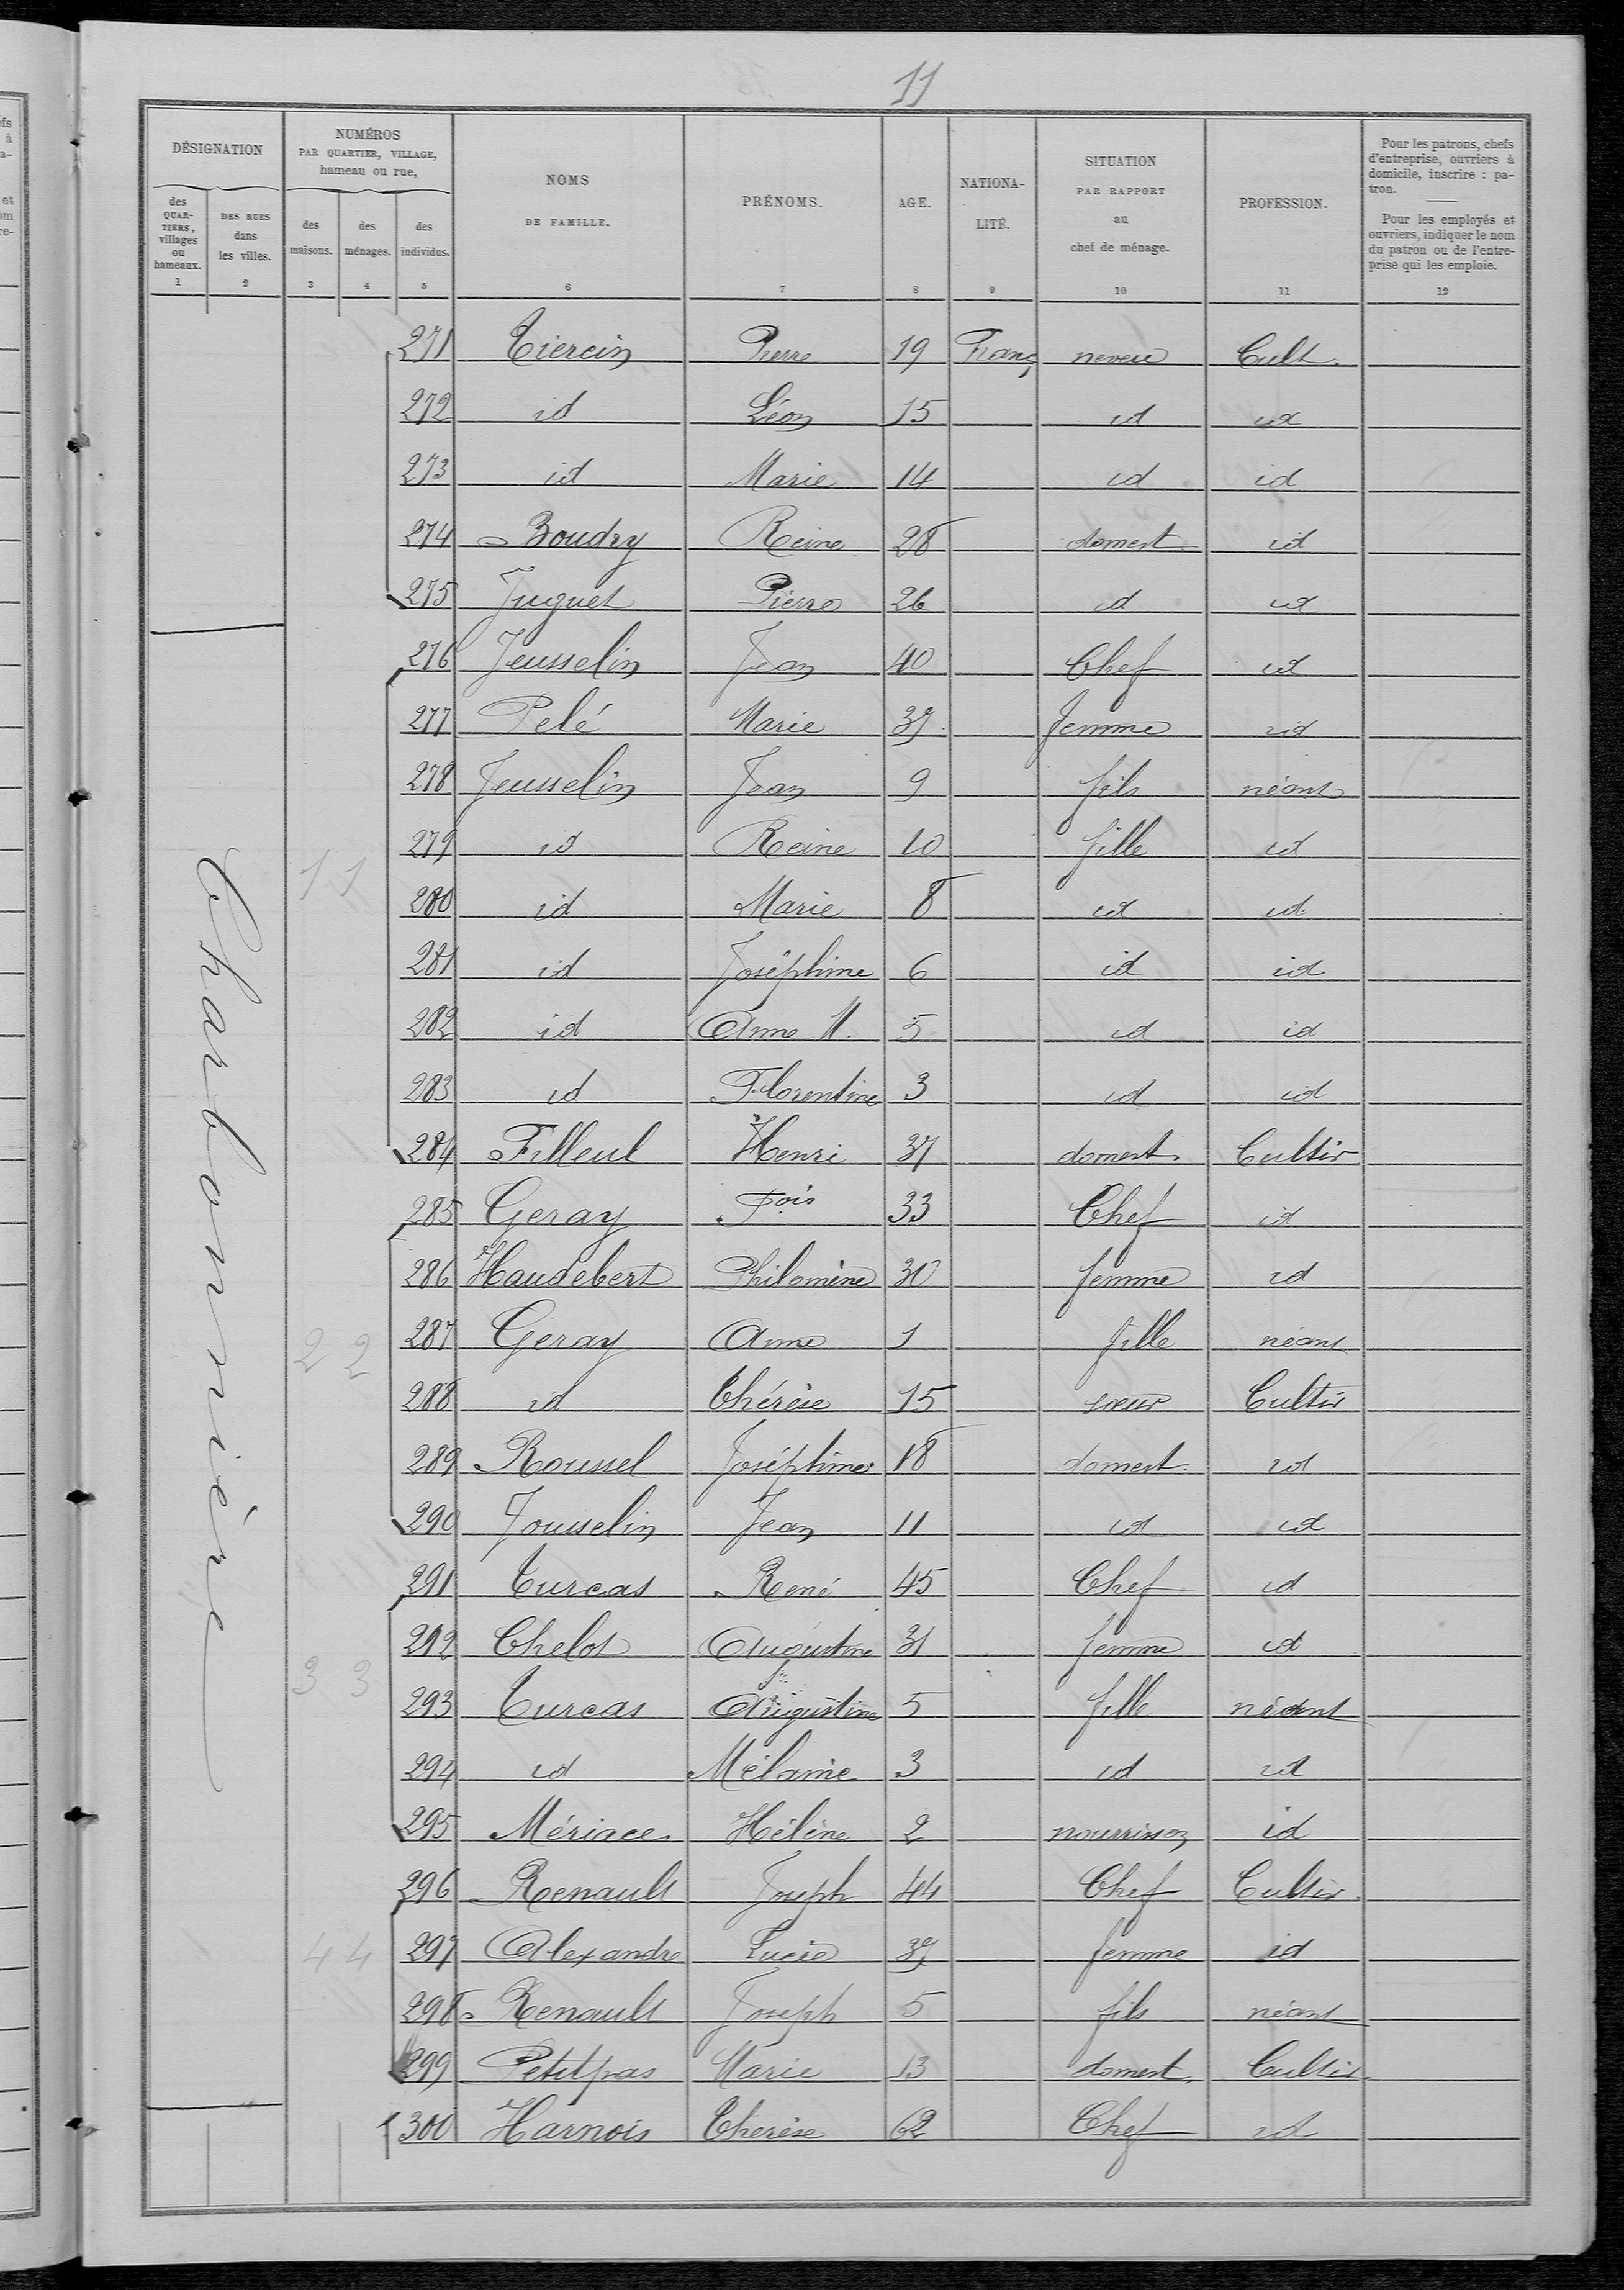 11
DÉSIGNATION
des QUARTIERS, villages ou hameaux. 1
DES RUES dans les villes. 2
NUMÉROS PAR QUARTIER, VILLAGE, hameau ou rue,
des maisons. 3
des ménages. 4
des individus. 5
NOMS DE FAMILLE. 6
PRÉNOMS. 7
AGE. 8
NATIONALITÉ. 9
SITUATION PAR RAPPORT au chef de ménage. 10
PROFESSION. 11
Pour les patrons, chefs d'entreprise, ouvriers à domicile, inscrire : patron.
Pour les employés et ouvriers, indiquer le nom du patron ou de l'entreprise qui les emploie. 12
Charbonnière
271 Tiercin Pierre 19 Franç neveu Cult.
272 id Léon 15 id id
273 id Marie 14 id id
274 Boudry Reine 28 domest. id
275 Juguet Pierre 26 id id
276 Jeusselin Jean 40 Chef id
277 Pelé Marie 37 femme id
278 Jeusselin Jean 9 fils néant
1 1 279 id Reine 10 fille id
280 id Marie 8 id id
281 id Joséphine 6 id id
282 id Anne M. 5 id id
283 id Florentine 3 id id
284 Filleul Henri 37 domest. Cultiv
285 Geray Fois 33 Chef id
286 Haudebert Philomène 30 femme id
2 2 287 Geray Anne 1 fille néant
288 id Thérèse 15 sœur Cultiv
289 Roussel Joséphine 18 domest. id
290 Jousselin Jean 11 id id
291 Turcas René 45 Chef id
292 Chelot Augustine 31 femme id
3 3 293 Turcas Augustine 5 fille néant
294 id Mélanie 3 id id
295 Mériace Hélène 2 nourrisson id
296 Renault Joseph 44 Chef Cultiv.
4 4 297 Alexandre Lucie 37 femme id
298 Renault Joseph 5 fils néant
299 Petitpas Marie 13 domest. Cultiv
300 Harnois Therèse 62 Chef id